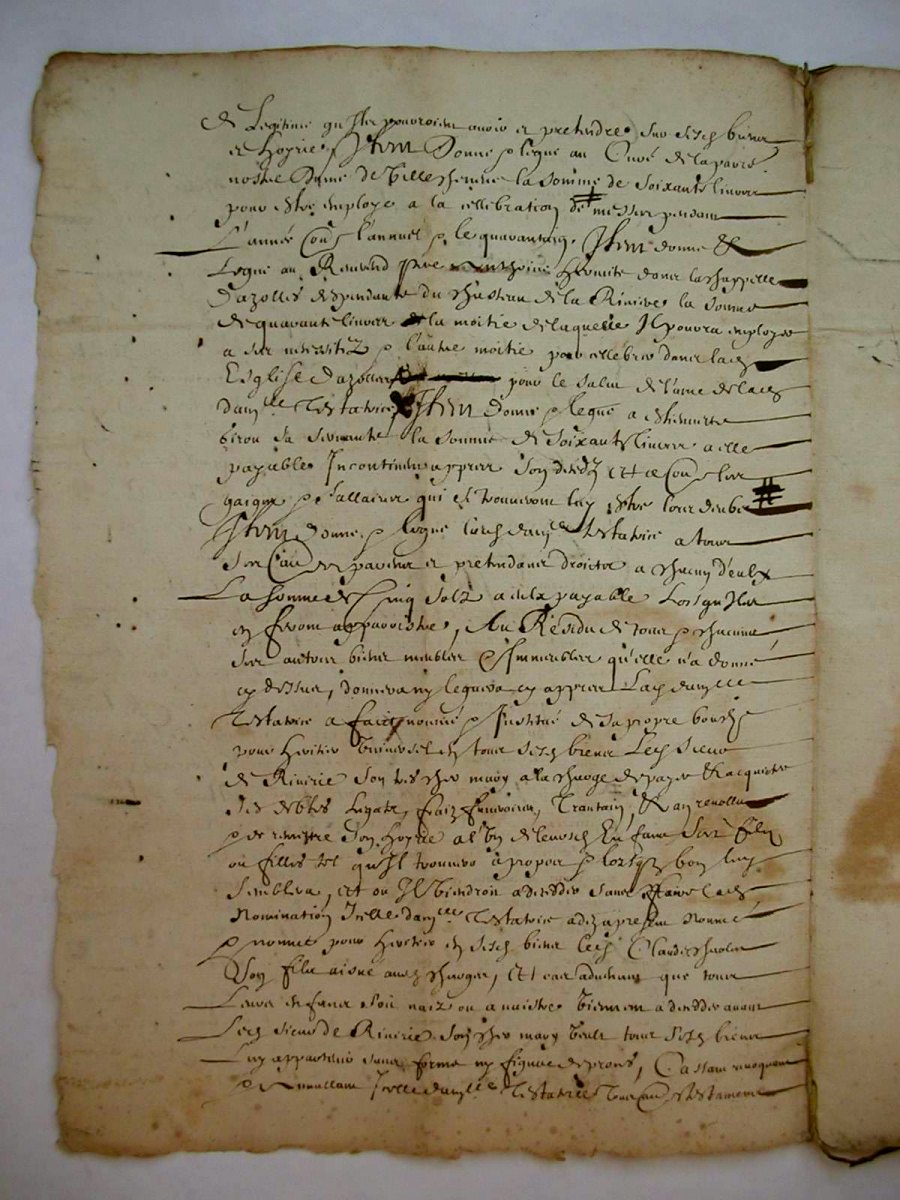 de Legitime quilz pouroient avoir et pretendre sur sesd biens
et hoyrie, Item donne & legue au Curé de la paroi
nostre Dame de la somme de soixante livres
pour estre employe a la cellebration de messes pendant
L'année Con l'annuel & le quarantain, Item donne &
Legue au Reverend père hermite dans la chappelle
dazolles despendante du chasteau de la Rivière la somme
de quarante livres la moitie de laquelle Il poura employer
a ses necessitez & l'autre moitie pour cellebrer dans lad
Esglise dazolles pour le salut de l'ame de lad
dam.lle Testatrice, Item donne & legue a Estiennette
sa servante la somme de soixante livres a elle
payable Incontinent apprez son deced et ce les
gaiges & sallaires qui se trouveront luy estre lors deubz
Item donne & legue lad dam.lle testatrice a tous
ses autres parens et pretendans droictz a chacung d'eulx
La somme de Cinq solz a eulx payable Lors quilz
en feront apparoistre, Au Residu de tous & chacuns
ses autres biens meubles & Immeubles qu'elle n'a donné
cy dessus, donnera ny leguera cy apprez Lad dam.lle
Testatrice a faict nommé & Institué de sa propre bouche
pour heritier universel en tous sesd biens Led sieur
de Rivirie son tres cher mary a la charge de payer & acquicter
ses debtes Legatz, fraiz funeraires, Trantain, & an revollu
& de remettre son hoyrie a l'un de leursd Enfans soit filz
ou filles tel qu'Il trouvera a propos & lorsque bon luy
semblera, et ou Il viendroit a decedder sans faire lad
Nomination Icelle dam.lle Testatrice a dez a present nommé
& nomme pour heritier en sesd biens led Claude
son filz aisné aux charges, et cas advenant que tous
Leurs enfans soit naiz ou a naistre vinssent a decedder avant
Led sieur de Rivirie son cher mary veult tous sesd biens
luy appartenir sans forme ny figure de procès, Cassant revoquant
& annullant Icelle dam.lle Testatrice tous autres testamens